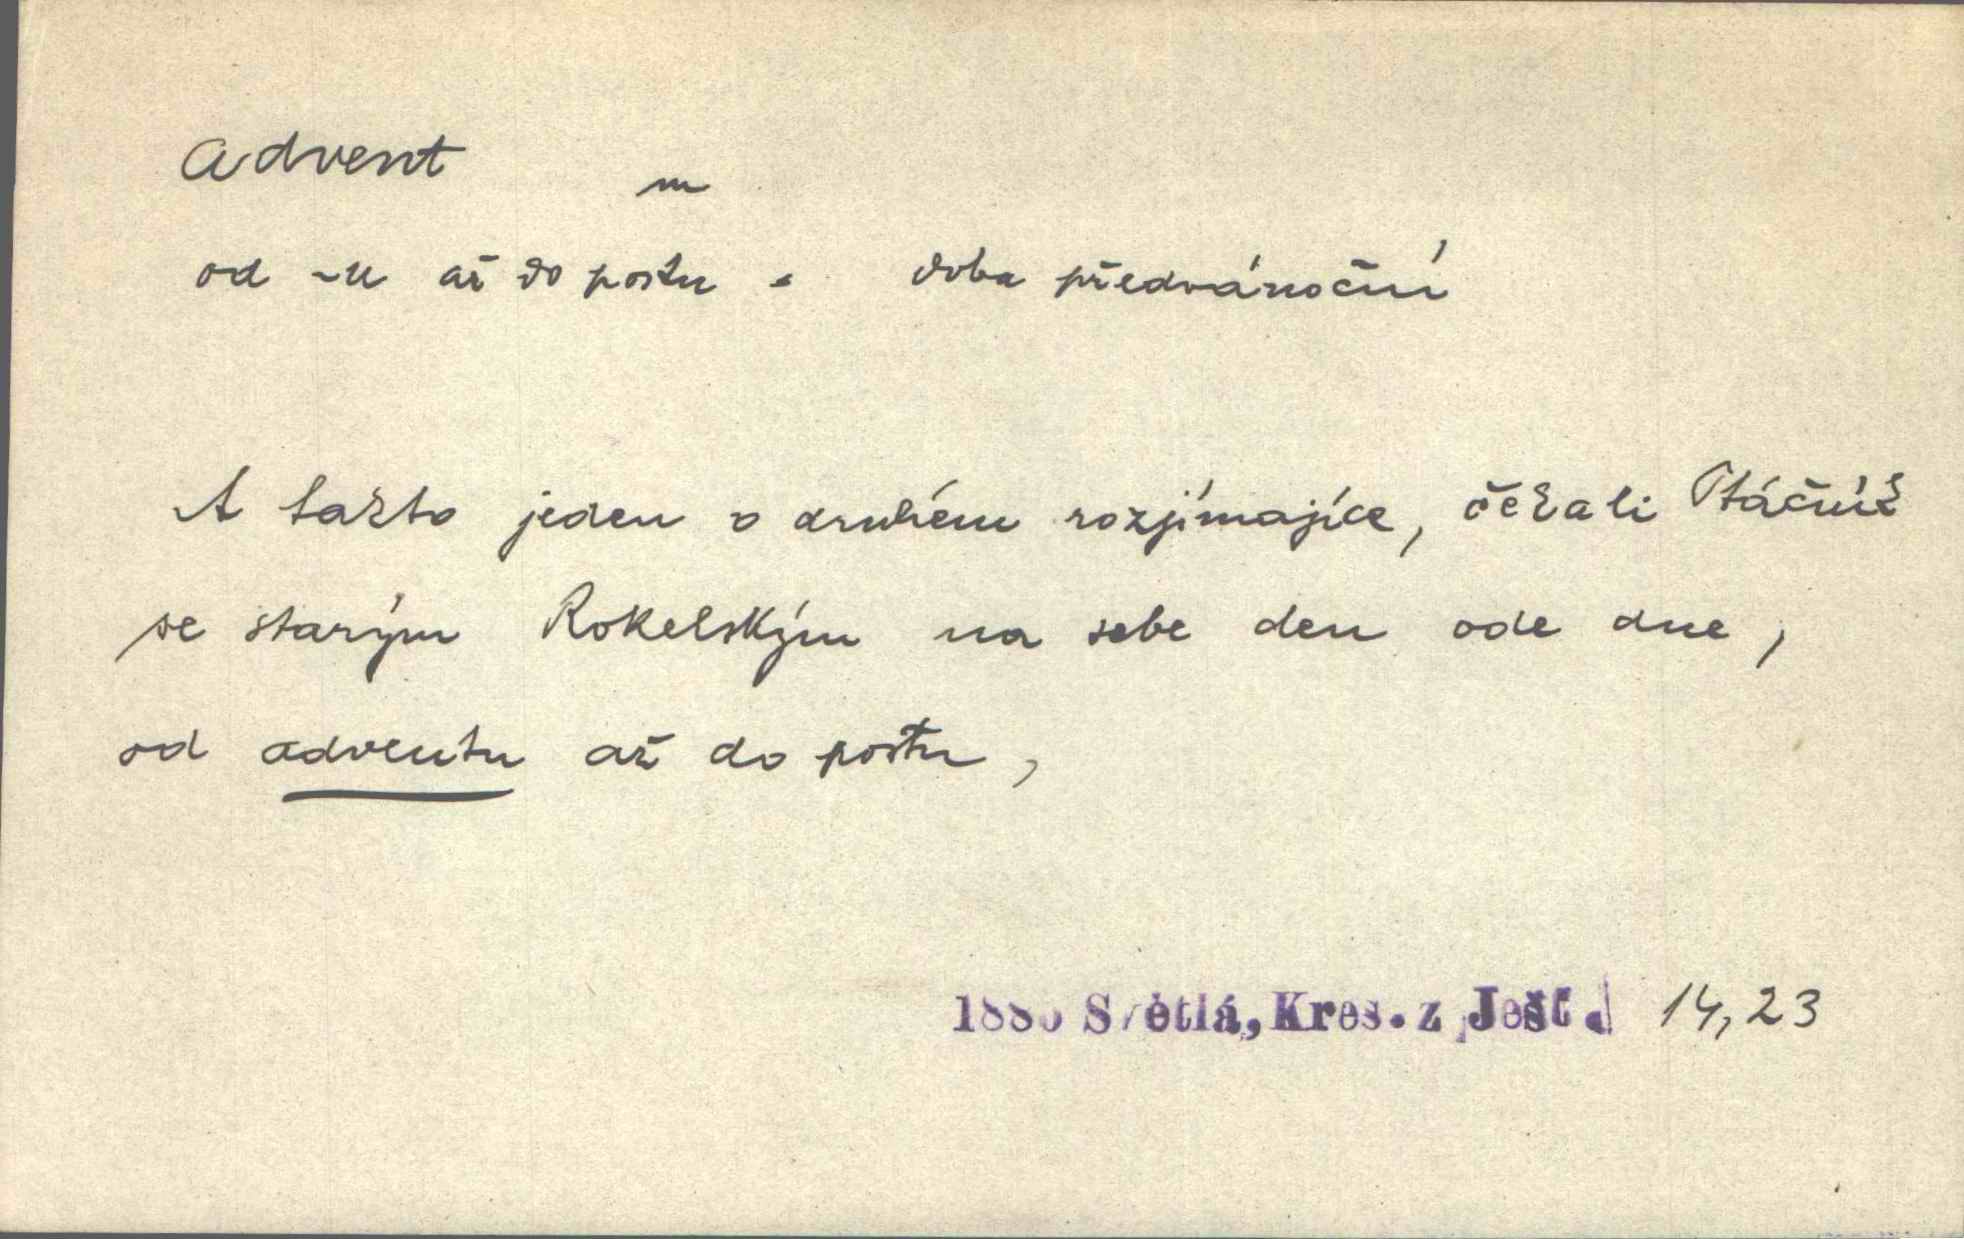 advent m
od ~u až do postu . doba předvánoční
A takto jeden o druhém rozjímajíce, čekali Ptáčník
se starým Rokelským na sebe den ode dne,
od adventu až do postu,
1880 Světlá, Kres. z Ješt. 14,23